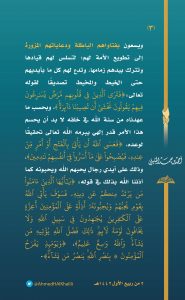 (٣)
ويسعون بفتاواهم الباطلة ودعاياتهم المزورة
إلى تطويع الأمة لهم؛ لتسلس لهم قيادها
وتترك بيدهم زمامها، وتدع لهم كل ما بأيديهم
حتى الخيط والمخيط تصديقا لقوله
تعالى: ﴿فَتَرَى الَّذِينَ فِي قُلُوبِهِم مَّرَضٌ يُسَارِعُونَ
فِيهِمْ يَقُولُونَ نَخْشَىٰ أَن تُصِيبَنَا دَائِرَةٌ﴾، وبحسب ما
عهدناه من سنة الله في خلقه لا بد أن يحسم
هذا الأمر قدر إلهي يبرمه الله تعالى تحقيقا
لوعده، ﴿فَعَسَى اللَّهُ أَن يَأْتِيَ بِالْفَتْحِ أَوْ أَمْرٍ مِّنْ
عِندِهِ، فَيُصْبِحُوا عَلَىٰ مَا أَسَرُّوا فِي أَنفُسِهِمْ نَادِمِينَ﴾،
وذلك على أيدي رجال يحبهم الله ويحبونه كما
أذننا الله بذلك في قوله: ﴿يَا أَيُّهَا الَّذِينَ آمَنُوا
مَن يَرْتَدَّ مِنكُمْ عَن دِينِهِ، فَسَوْفَ يَأْتِي اللَّهُ
بِقَوْمٍ يُحِبُّهُمْ وَيُحِبُّونَهُ، أَذِلَّةٍ عَلَى الْمُؤْمِنِينَ أَعِزَّةٍ
عَلَى الْكَافِرِينَ يُجَاهِدُونَ فِي سَبِيلِ اللَّهِ وَلَا
يَخَافُونَ لَوْمَةَ لَائِمٍ ذَٰلِكَ فَضْلُ اللَّهِ يُؤْتِيهِ مَن
يَشَاءُ وَاللَّهُ وَاسِعٌ عَلِيمٌ﴾، ﴿وَيَوْمَئِذٍ يَفْرَحُ
الْمُؤْمِنُونَ ۝ بِنَصْرِ اللَّهِ يَنصُرُ مَن يَشَاءُ﴾
٢ من ربيع الأول ١٤٤٦هـ
@AhmedHAlKhalili